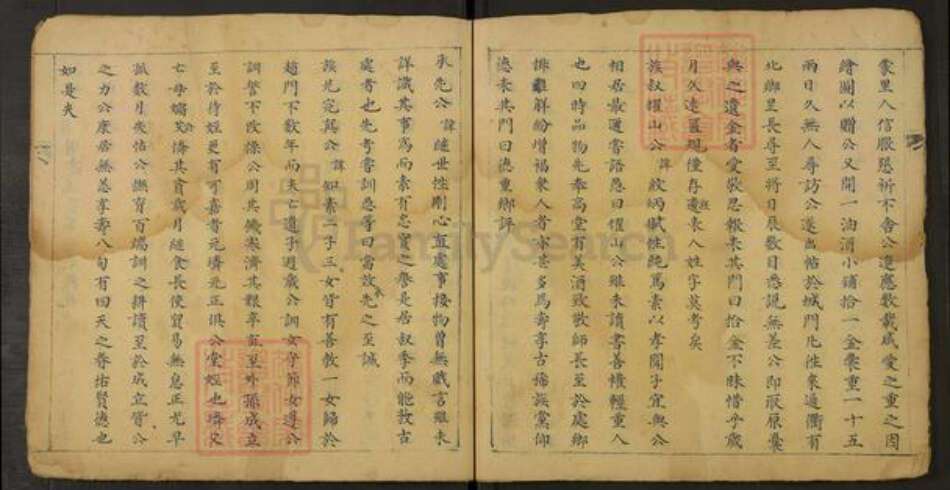 蒙里人信服懇祈不舍公遂應數載咸愛之重之因
繪圖以贈公又開一油酒小鋪拾一金袋重一十五
兩日久無人尋訪公遂出帖於城門比往來通衢有
北鄉里長尋至將日辰數目悉說無差公即取原橐
與之遺金者愛敬思報表其門曰拾金不昧惜乎歲
月久遠匾現僅存表人姓字莫考矣
族叔耀山公諱紋炳賦性純篤素以孝聞子宜與公
相居最邇嘗語愚曰耀山公雖未讀書善積輕重人
也四時品物先奉高堂有美酒致敬師長至於處鄉
排難解紛增福衆人者亦甚多焉壽享古稀族黨仰
德表其門曰德重鄉評
承先公諱繩世性剛心直處事接物曾無戲言雖未
詳識其事焉而素有忠實之譽是居叔季而能敦古
處者也先考嘗訓愚等曰當效先之至誠
族兄完真公諱如素一子三女皆有善教一女歸於
趙門不數年而夫亡遺子週歲公訓女守節女遵公
訓誓不改操公周其饑寒濟其艱辛直至外孫成立
至於待姪更有可嘉者元璘元正俱公堂姪也璘父
亡母孀公憐其貧歲月繼食長使貿易無息正尤早
孤數月失怙公撫育百端訓之耕讀至於成立皆公
之力公康居無恙享壽八旬有四天之眷佑賢德也
如是夫
FamilySearch